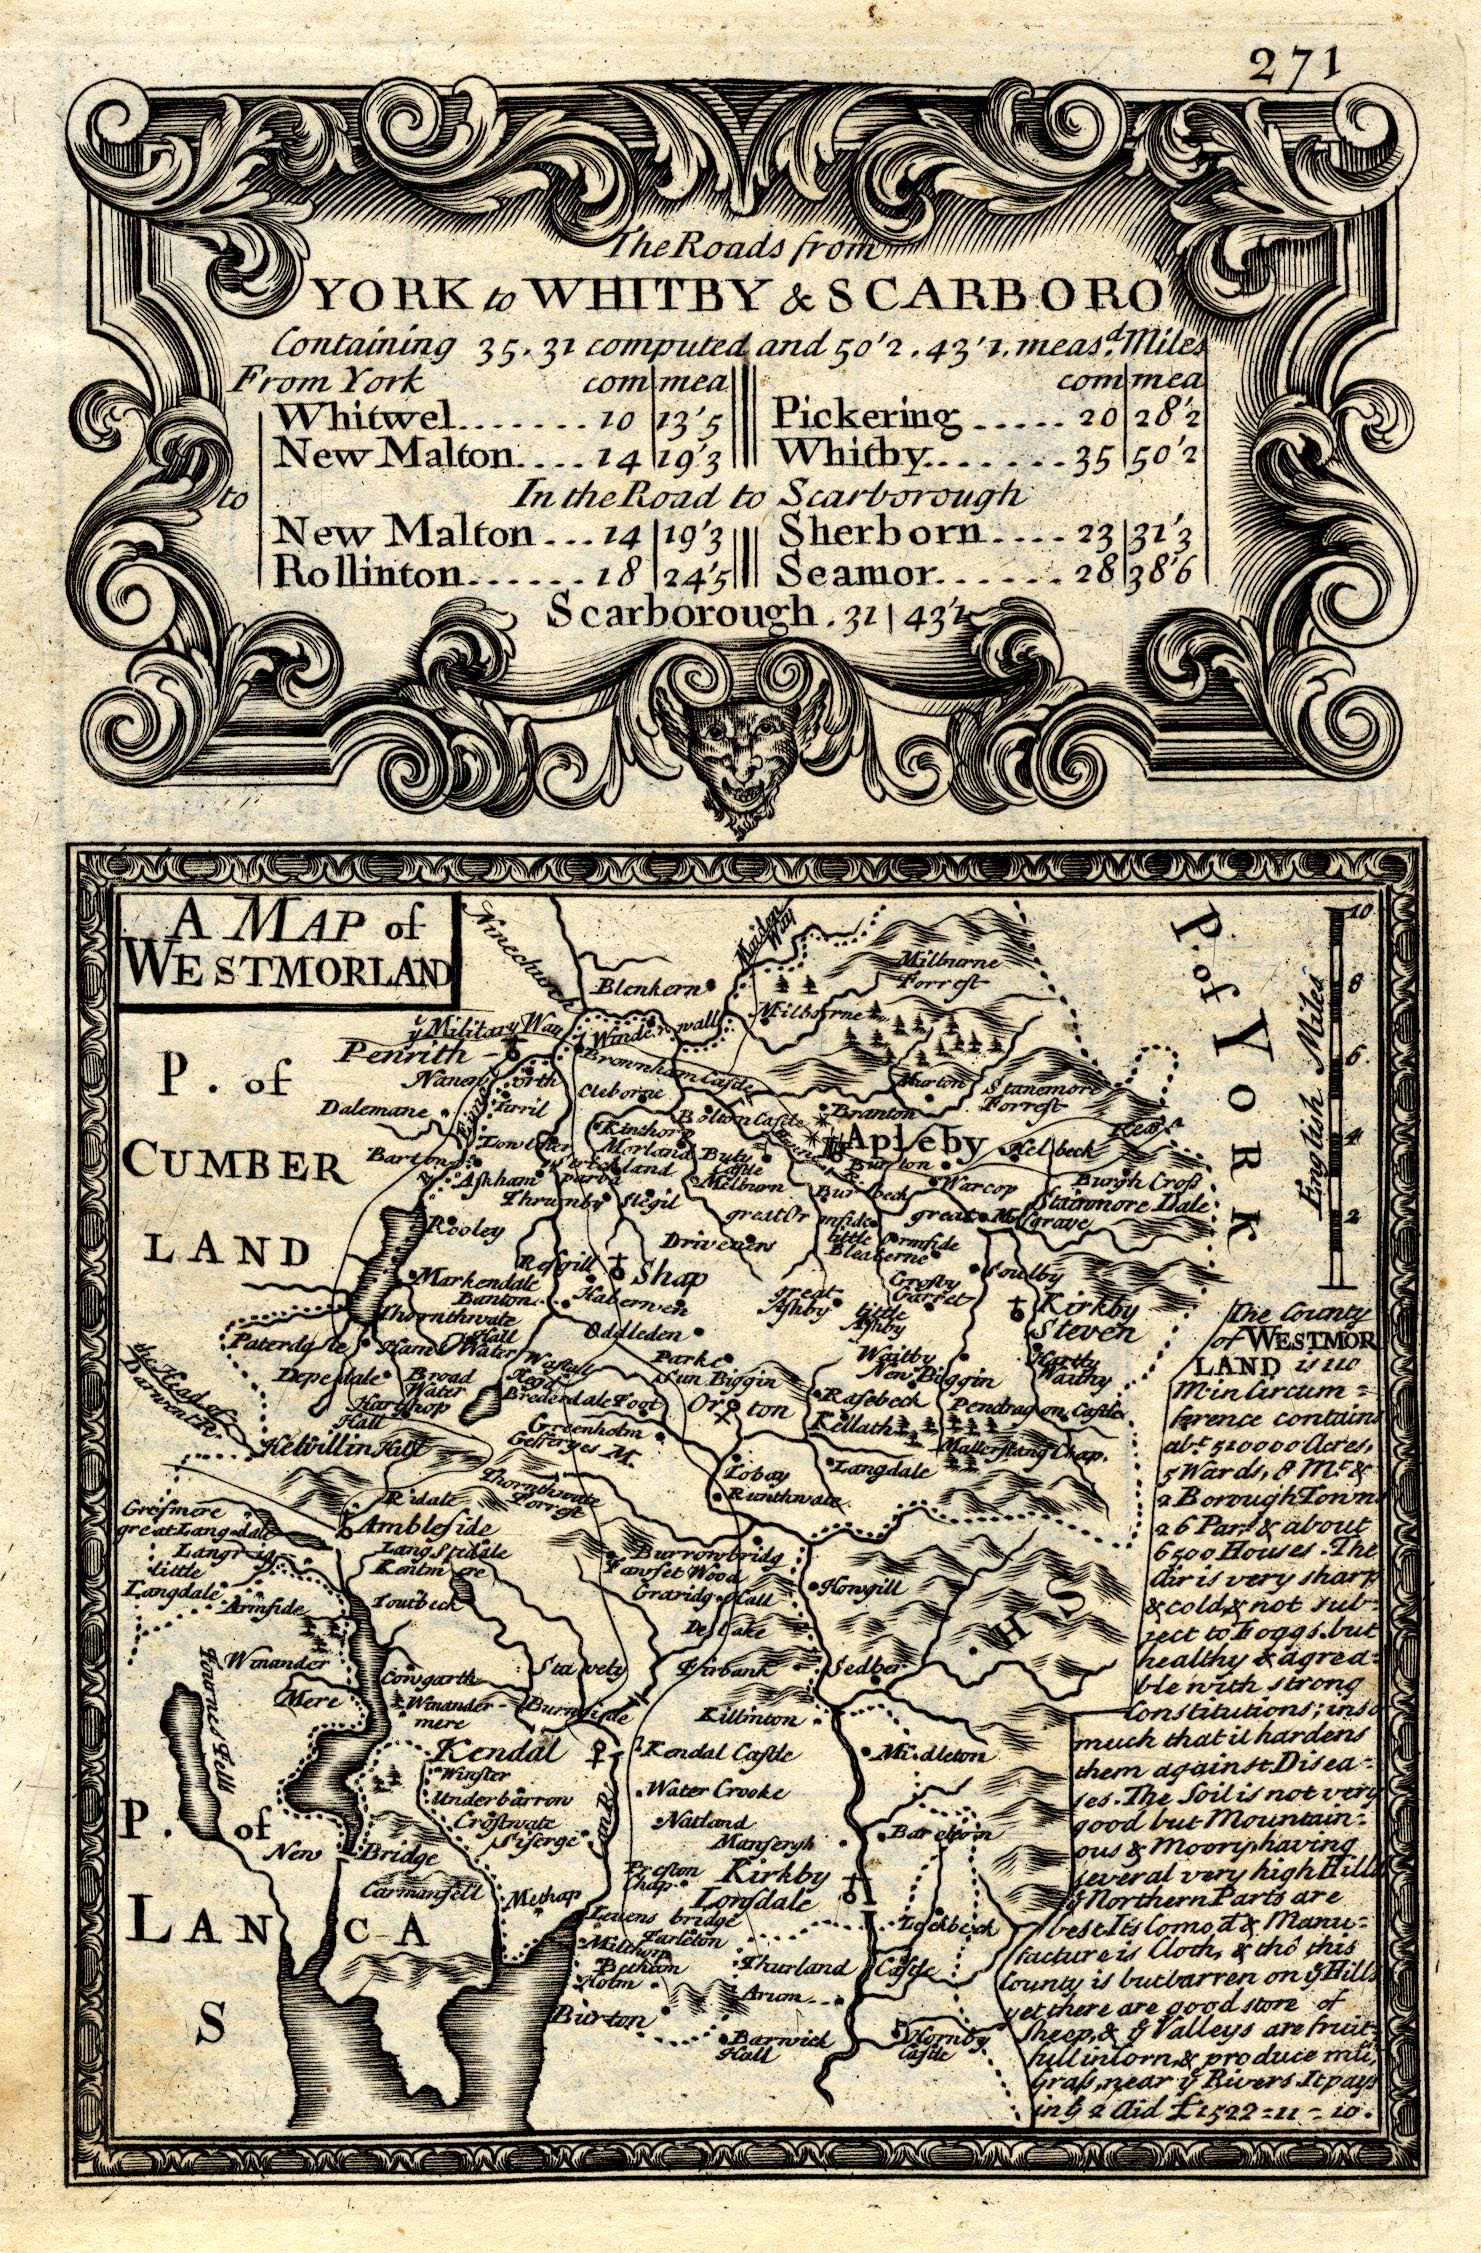 271
The Roads from
YORK to WHITBY & SCARBORO
Containing 35, 31 computed and 50'2, 43'1, meas.d Miles
From York com mea com mea
Whitwel....... 10 13'5 Pickering ..... 20 28'2
New Malton.... 14 19'3 Whitby........ 35 50'2
to In the Road to Scarborough
New Malton ... 14 19'3 Sherborn.... 23 31'3
Rollinton...... 18 24'5 Seamor...... 28 38'6
Scarborough . 31 43'1
A MAP of
WESTMORLAND
Ninechurch
Maiden Way
Milburne
Forrest
Blenkern
Milborne
ÿ Military Way
Winder wall
Penrith
Brownham Castle
Dalemane
Tirril
Cleborne
Murton
Stanemore
Forrest
Bolton Castle
Branton
Apleby
Helbeck
Kinthorp
Morland
Lowther
Barton
Strickland
parva
Buty
Castle
Burton
Warcop
Burgh Cross
Stainmore Dale
Askham
Melburn
Burlbeck
Thrumby
Slegil
great Ormside
great Musgrave
little Ormside
Bleaterne
Rooley
Driveuers
Resgill
Shap
Soulby
Markendale
Banton
Haberwen
Crosby
Garret
great
Ashby
little
Ashby
Kirkby
Steven
Thornthwate
Hall
Oddleden
Paterdgsle
Ham Water
Wastall
Parke
Waitby
Hartly
Waithy
New Biggin
Sun Biggin
Depedale
Broad
Water
Brederdale Foot
Orton
Rasebeck
Pendragon Castle
Hartshop
Hall
Greenholm
Kellath
Mallerstang Chap.
the Head of
Darwent R.
Kelvillin Hill
Gesserges M.
Tobay
Langdale
Runthwate
Thornthwate
Forrest
Ridale
Ambleside
Gresmere
great Langdale
Langrig
little
Langdale
Lang Stedale
Kentmere
Burrowbridg
Fawset Wood
Howgill
Armside
Toutbeck
Graridg Hall
Winander
Mere
Cowgarth
Stavely
Firbank
Sedber
Winander-
mere
Burnside
Killinton
Fournes Fell
Kendal
Kendal Castle
Middleton
Winster
Water Crooke
Underbarron
Natland
Crostwate
Siserge
Mansergh
Bareborn
New Bridge
Preston
Chap.
Kirkby
Lonsdale
Carmansell
Methap
Levens bridge
Farleton
Lockbeck
Milthorp
Betham
Holm
Thurland Castle
Burton
Arum
Barwick
Hall
Hornby
Castle
P. of
CUMBER
LAND
P. of YORK
HS
P. of
LANCA
S
English Miles
10
8
6
4
2
The County
of WESTMOR
LAND is 110
M. in Circum=
ference contains
abt. 510000 Acres,
5 Wards, 8 M.t &
2 Borough Towns
26 Par.s & about
6500 Houses. The
Air is very sharp
& cold, & not sub-
ject to Foggs, but
healthy & agrea=
ble with strong
Constitutions; inso
much that it hardens
them against Disea=
ses. The Soil is not very
good but Mountain=
ous & Moory, having
several very high Hills
ÿ Northern Parts are
best Its Comod. & Manu=
facture is Cloth, & tho' this
County is but barren on ÿ Hills
yet there are good store of
Sheep, & ÿ Valleys are fruit=
full in Corn, & produce mu
Grass, near ÿ Rivers. It pays
in ÿ 2 Aid £1522=11=10.